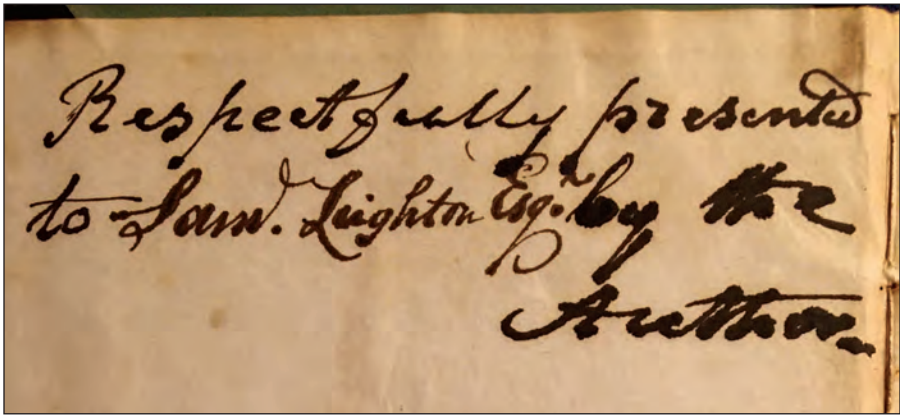 Respectfully presented
to Saml. Leighton Esqr. by the
Author